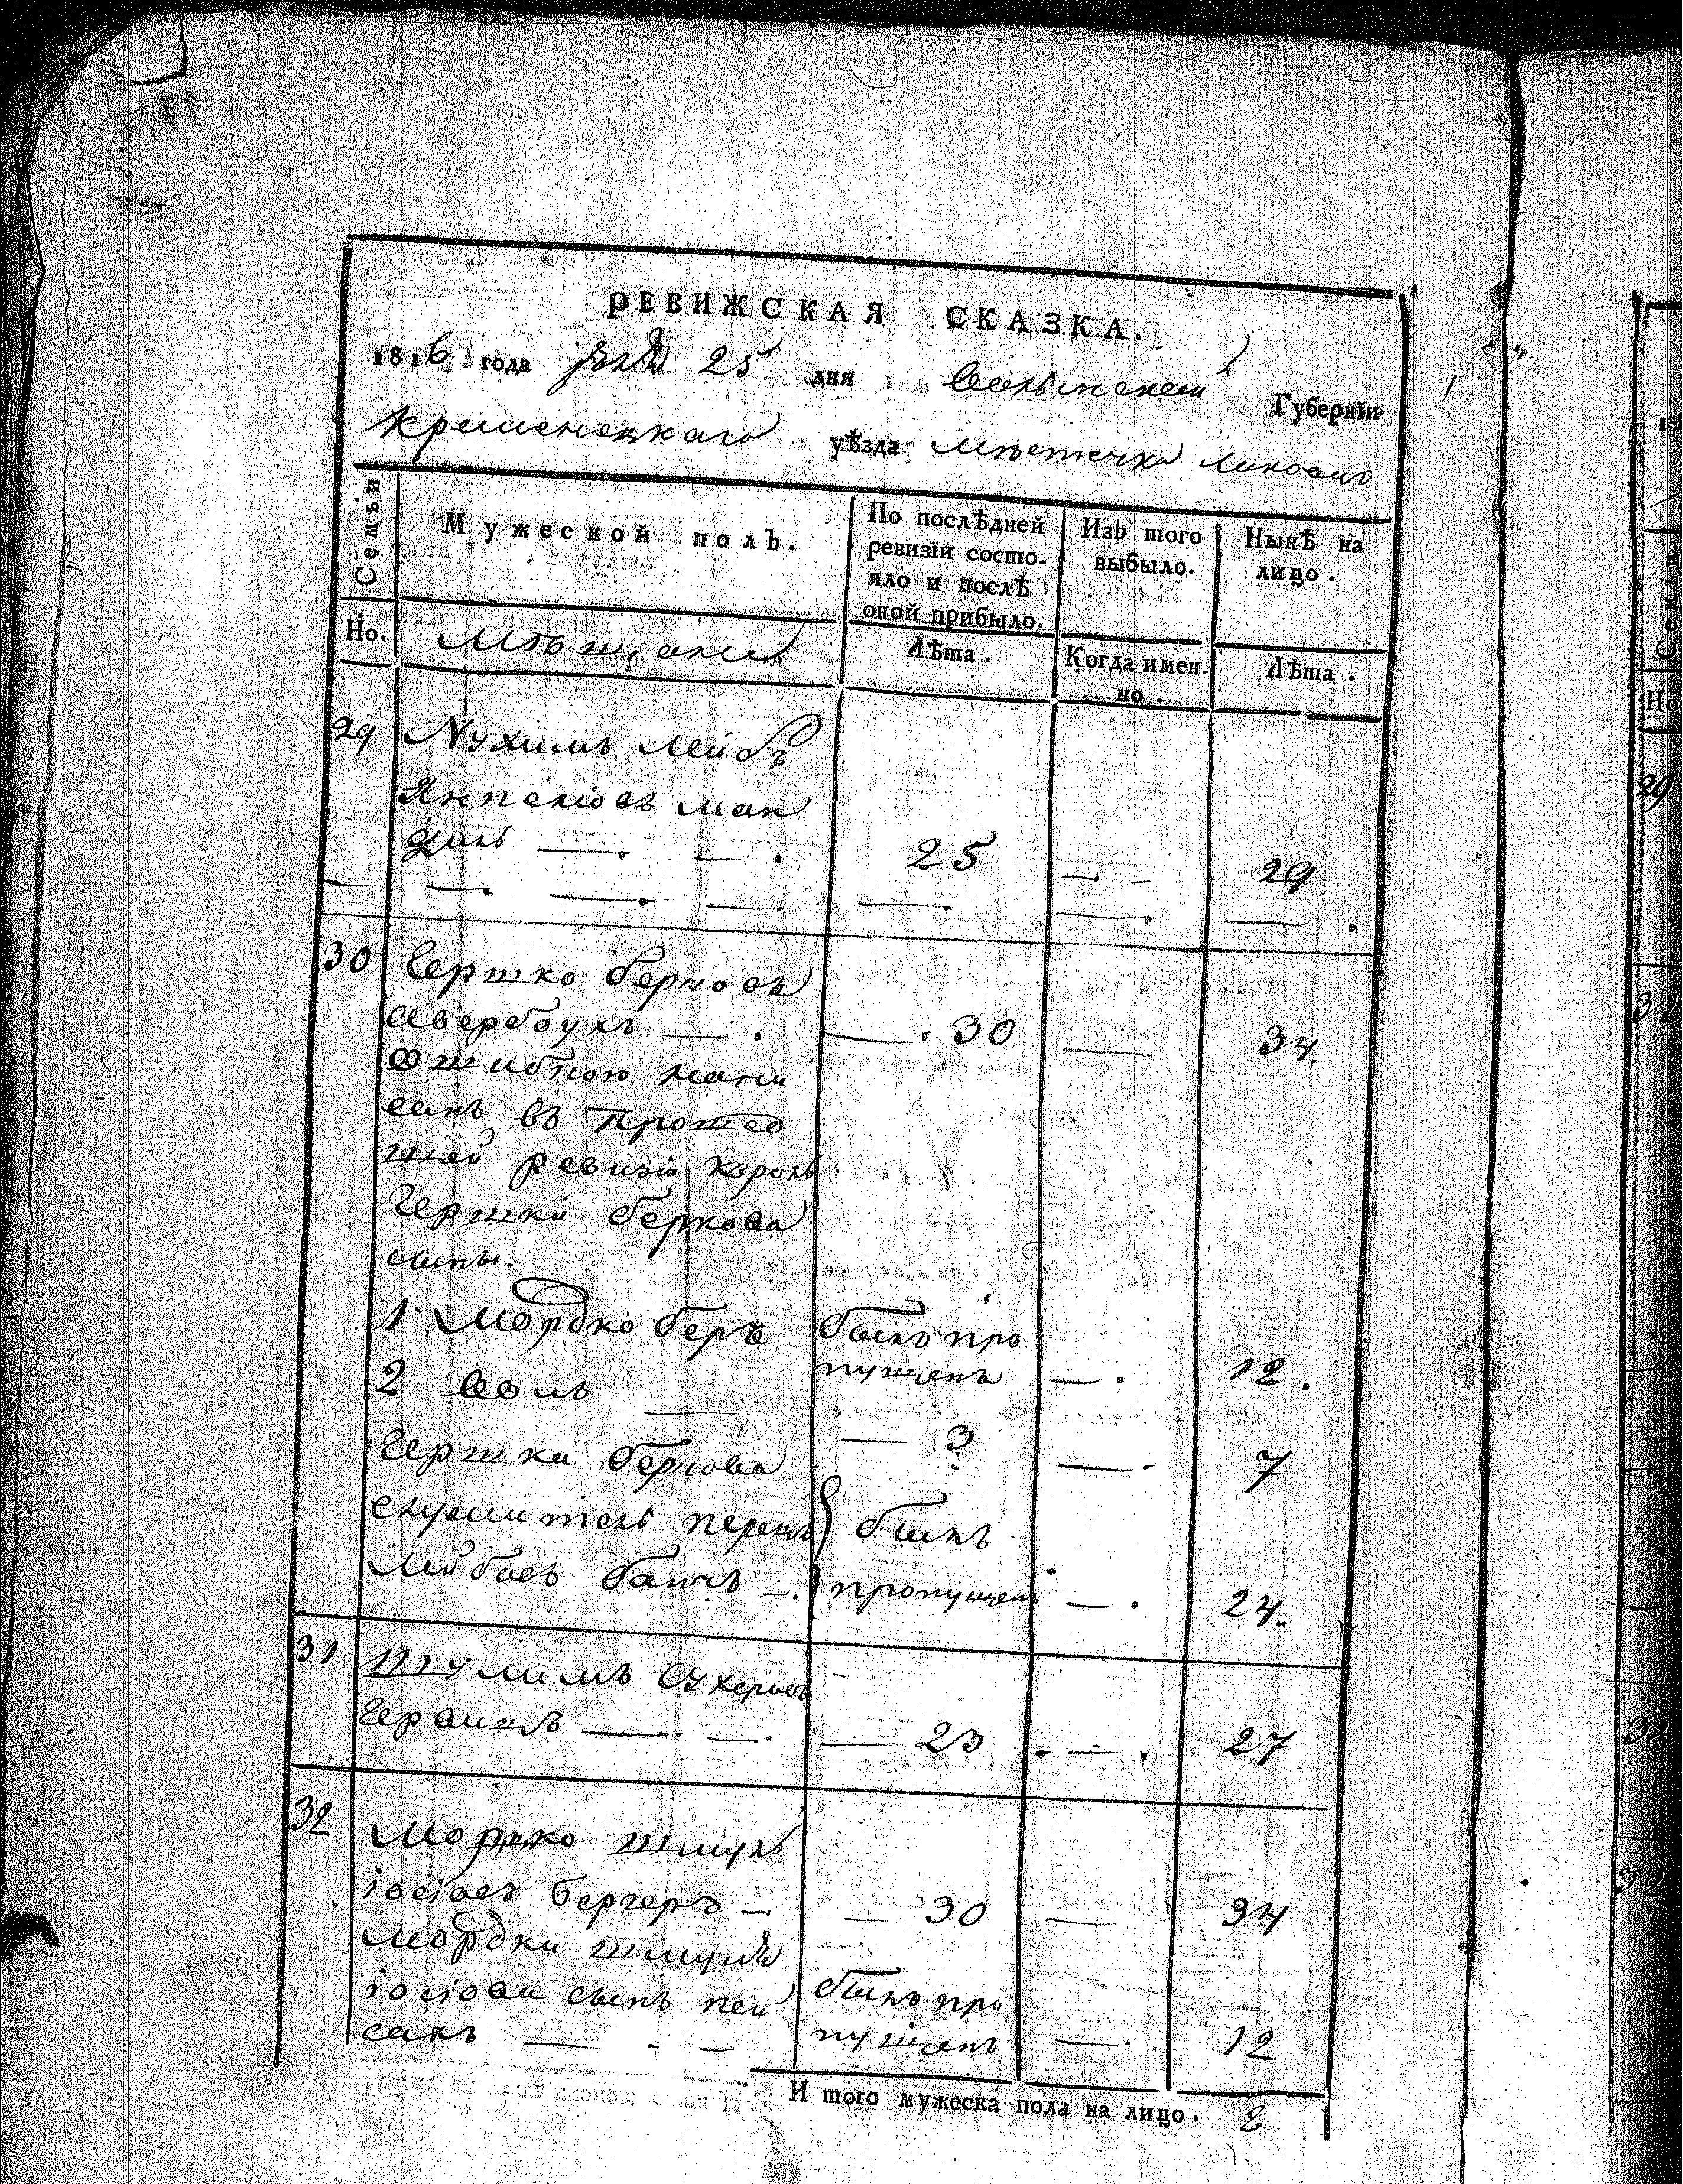 РЕВИЖСКАЯ СКАЗКА.
1816 года 25 дня Волынской Губернїи
Кременецкаго уѣзда мѣстечка
Семьи
Мужеской полъ.
По послѣдней ревизїи состо-
яло и послѣ
оной прибыло.
Изъ того
выбыло.
Нынѣ на
лицо.
Но.
Мѣщане
Лѣта.
Когда имен-
но.
Лѣта.
29 Нухимъ Лейбъ
25 29
30 Гершко Берковъ
Авербухъ 30 34.
ошибкою напи
санъ въ прошед
шей ревизіи
Гершки Беркова
сыны.
1 Мордко Беръ былъ про
пущенъ 12.
2 3 7
Гершка Беркова
служитель Перецъ былъ
Лейбовъ пропущенъ 24.
31 Шулимъ
23 27
32 Мордко Шмуль
Іосіовъ Бергеръ 30 34
Мордки Шмуля
Іосіова сынъ Пей
сахъ былъ про
пущенъ 12
И того мужеска пола на лицо. 8